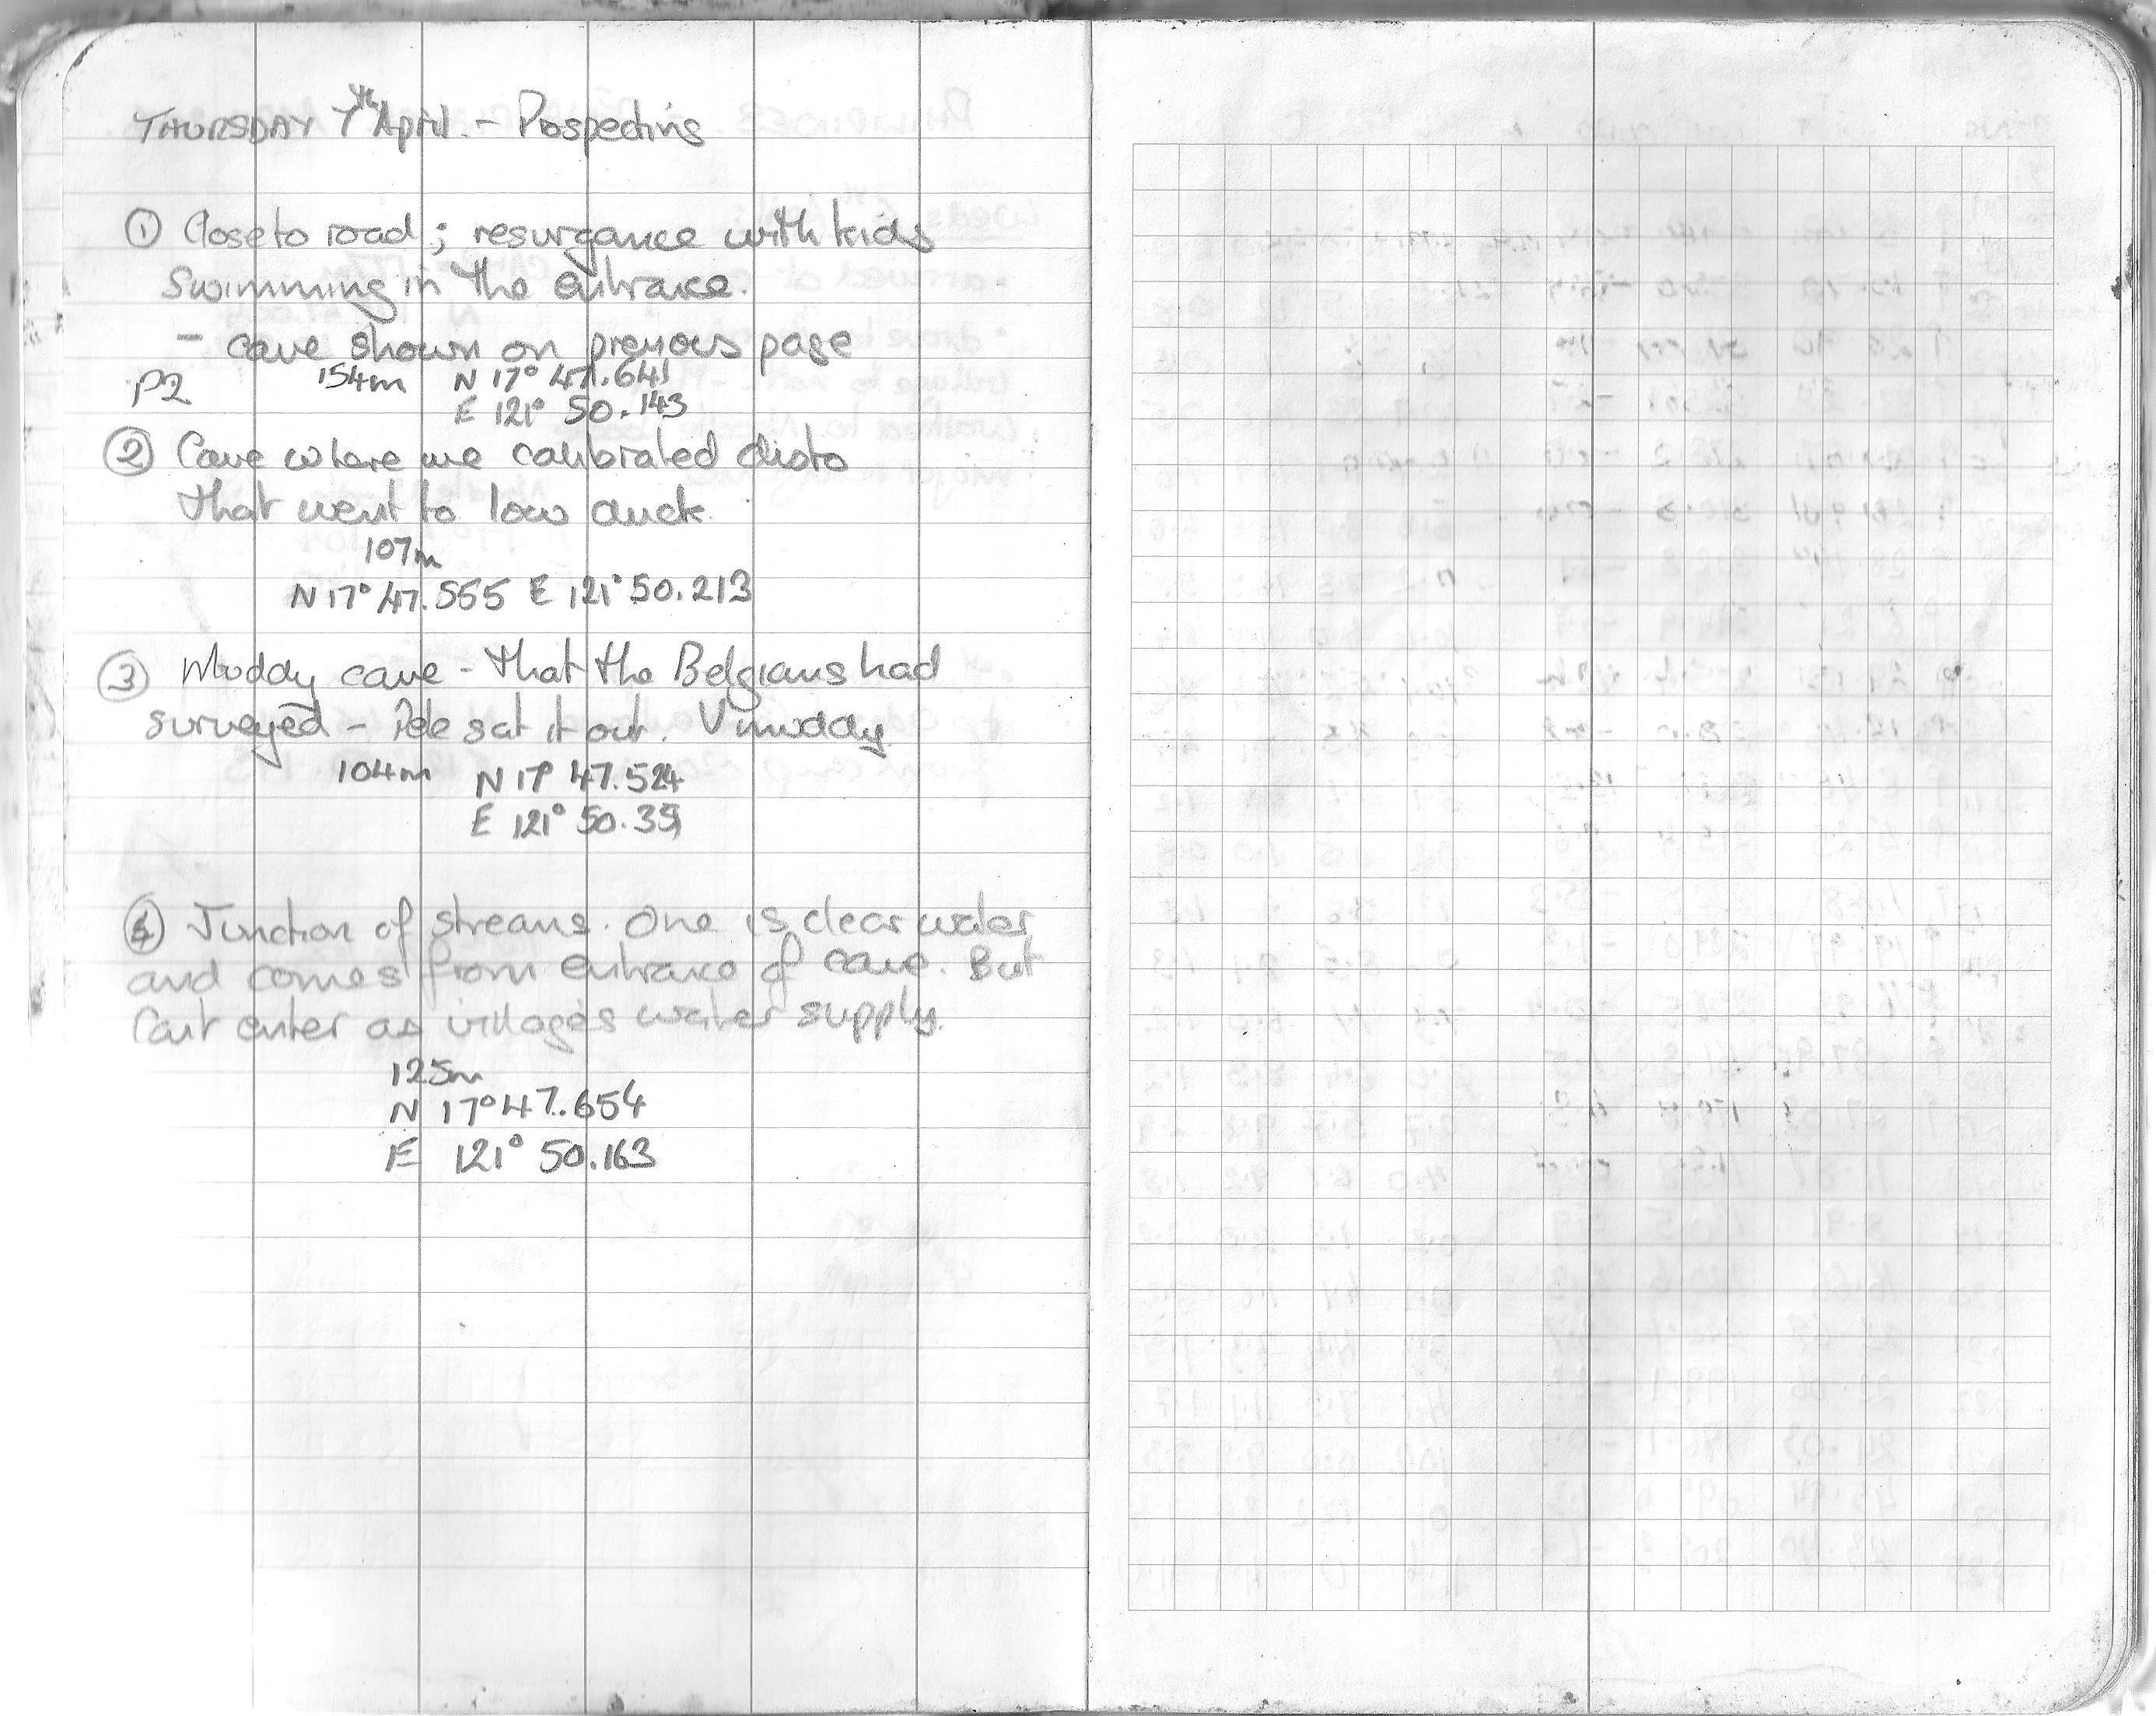 THURSDAY 7th April. - Prospecting
① Close to road; resurgance with kids
Swimming in the entrance.
- cave shown on previous page
P2 154m N 17° 47.641
E 121° 50.143
② Cave where we calibrated disto
that went to low duck.
107m
N 17° 47.555 E 121° 50.213
③ Muddy cave - that the Belgians had
surveyed - Pete sat it out. V muddy
104m N 17° 47.524
E 121° 50.35
④ Junction of streams. One is clear water
and comes from entrance of cave. But
Cant enter as villages water supply.
125m
N 17° 47.654
E 121° 50.163